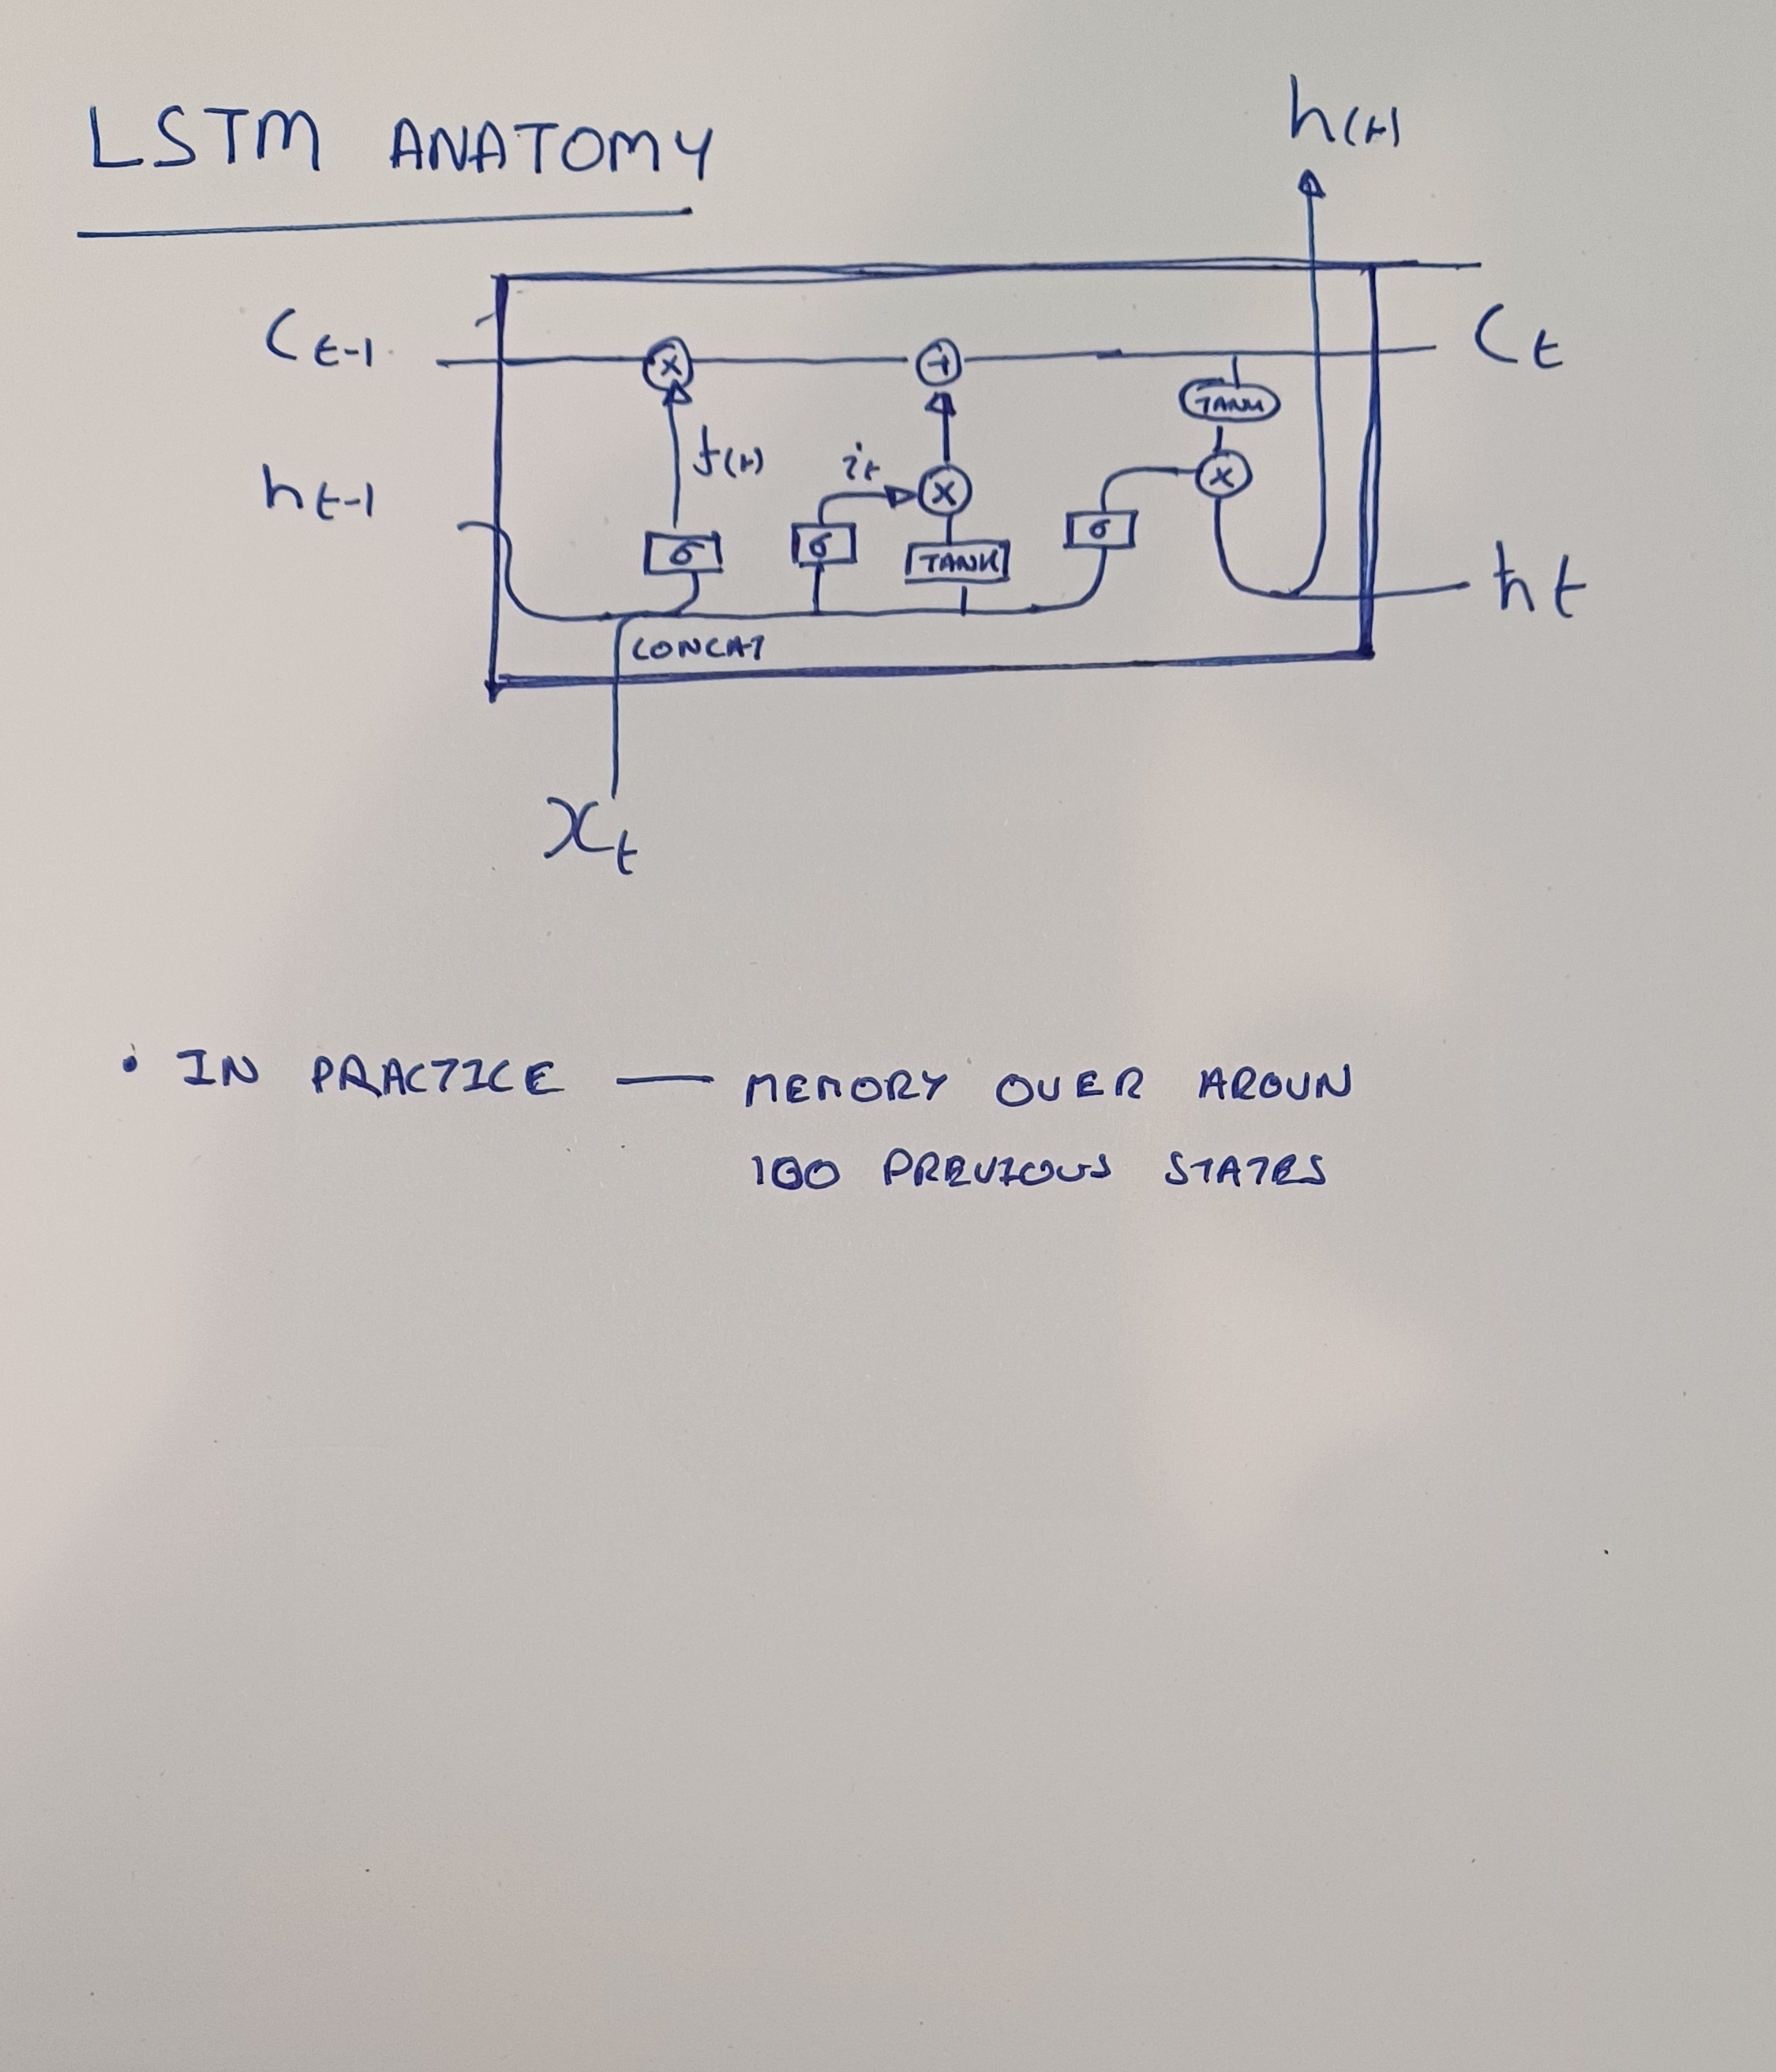 LSTM ANATOMY
h(t)
Ct-1
Ct
x
+
TANH
f(t)
it
x
x
ht-1
σ
σ
TANH
σ
ht
CONCAT
xt
• IN PRACTICE — MEMORY OVER AROUN
100 PREVIOUS STATES